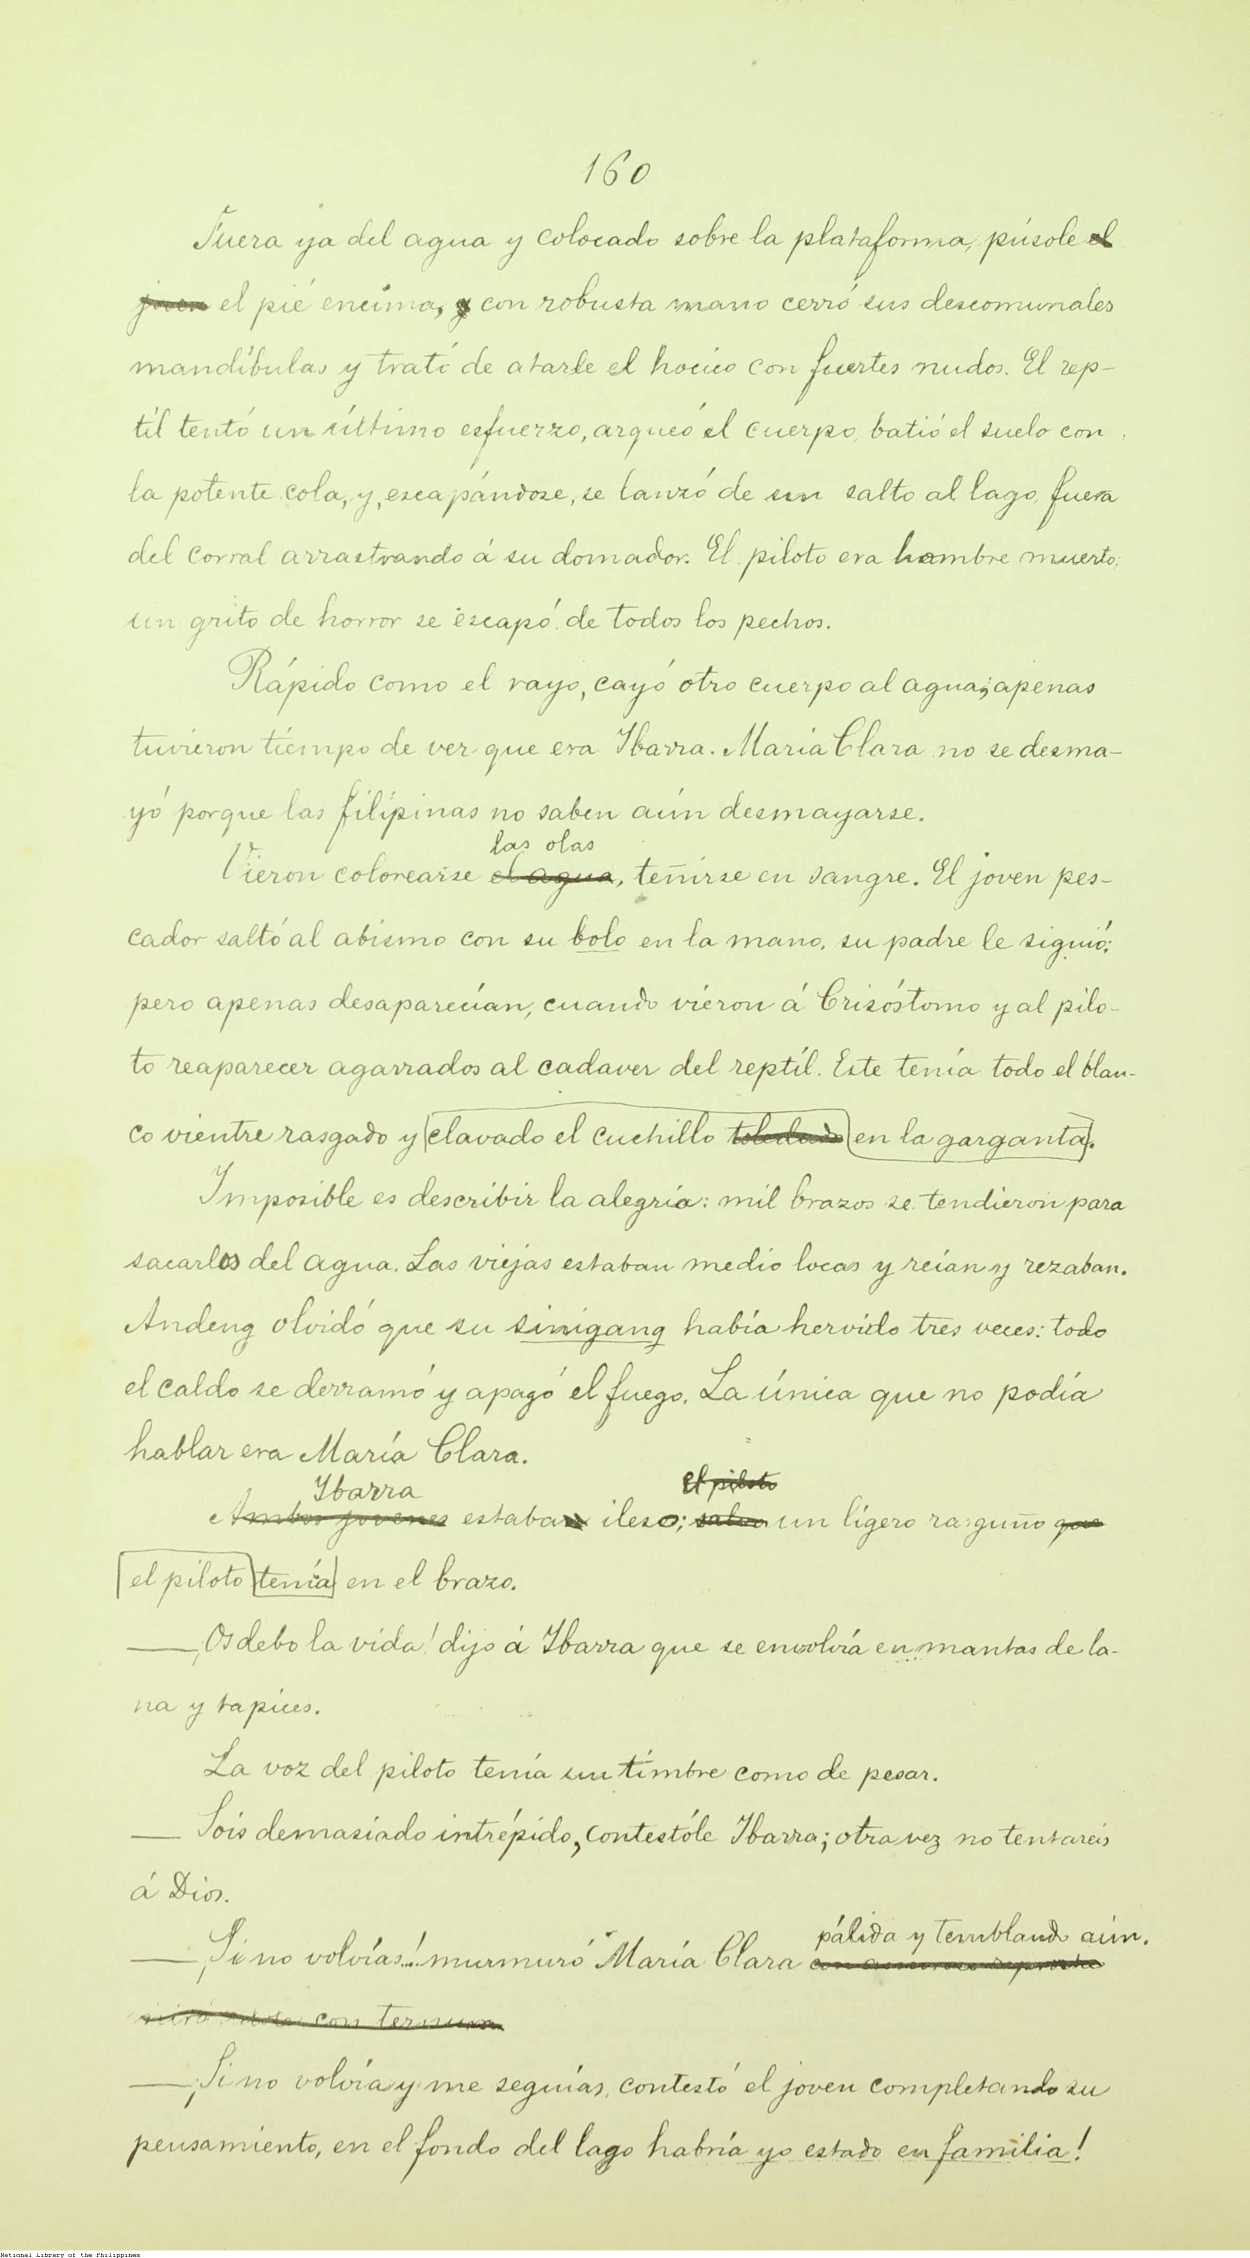 160
Fuera ya del agua y colocado sobre la plataforma, púsole el
joven el pié encima, y con robusta mano cerró sus descomunales
mandíbulas y trató de atarle el hocico con fuertes nudos. El rep-
til tentó un último esfuerzo, arqueó el cuerpo, batió el suelo con
la potente cola, y, escapándose, se lanzó de un salto al lago, fuera
del corral arrastrando á su domador. El piloto era hombre muerto;
un grito de horror se escapó de todos los pechos.
Rápido como el rayo, cayó otro cuerpo al agua; apenas
tuvieron tiempo de ver que era Ibarra. María Clara no se desma-
yó porque las filipinas no saben aún desmayarse.
las olas
Vieron colorearse el agua, teñirse en sangre. El joven pes-
cador saltó al abismo con su bolo en la mano, su padre le siguió;
pero apenas desaparecían, cuando vieron á Crisóstomo y al pilo-
to reaparecer agarrados al cadaver del reptil. Este tenía todo el blan-
co vientre rasgado y clavado el cuchillo toledado en la garganta.
Imposible es describir la alegría: mil brazos se tendieron para
sacarlos del agua. Las viejas estaban medio locas y reían y rezaban.
Andeng olvidó que su sinigang había hervido tres veces: todo
el caldo se derramó y apagó el fuego. La única que no podía
hablar era María Clara.
Ibarra el piloto
Ambos jovenes estaban ileso; salvo un ligero rasguño que
el piloto tenía en el brazo.
— ¡Os debo la vida! dijo á Ibarra que se envolvía en mantas de la-
na y tapices.
La voz del piloto tenía un timbre como de pesar.
— Sois demasiado intrépido, contestóle Ibarra; otra vez no tentareis
á Dios.
pálida y temblando aún.
— ¡Si no volvías..! murmuró María Clara con
con ternura
— ¡Si no volvía y me seguías, contestó el joven completando su
pensamiento, en el fondo del lago habría yo estado en familia!
National Library of the Philippines